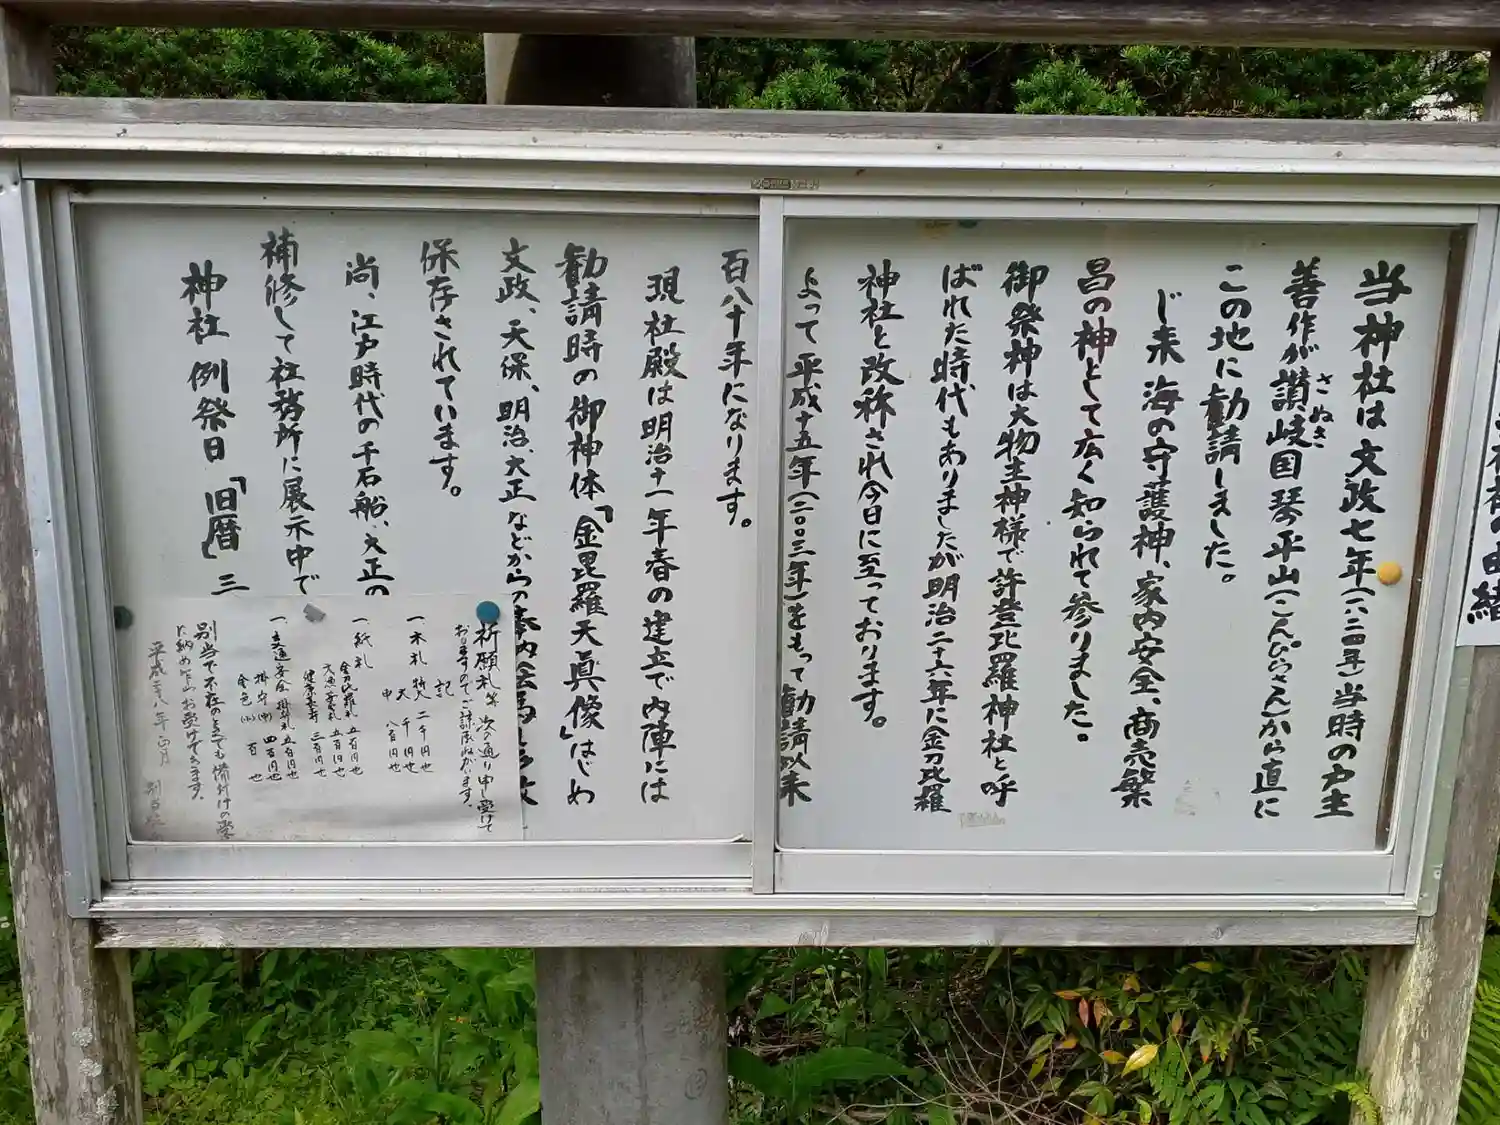 当神社は文政七年(一八二四年)当時の戸主
善作が讃岐国琴平山(こんぴらさん)から直に
さぬき
この地に勧請しました。
じ来海の守護神、家内安全、商売繁
昌の神として広く知られて参りました。
御祭神は大物主神様で許登比羅神社と呼
ばれた時代もありましたが明治二十六年に金刀比羅
神社と改称され今日に至っております。
よって平成十五年(二〇〇三年)をもって勧請以来
百八十年になります。
現社殿は明治十一年春の建立で内陣には
勧請時の御神体「金毘羅天眞像」はじめ
文政、天保、明治、大正などから
保存されています。
尚、江戸時代の千石船、大正の
補修して社務所に展示中で
神社例祭日「旧暦」三
祈願札等次の通り申し受けて
おりますのでご諒承ねがいます。
記
一木札 特大 二千円也
大 千円也
中 八百円也
一紙札 金刀比羅札 五百円也
五百円也
三百円也
一交通安全 掛半札 五百円也
掛守(中) 四百円也
金色(小) 百也
別当で不在のときでも備付けの
に納め お受けできます。
平成二八年 月
由緒